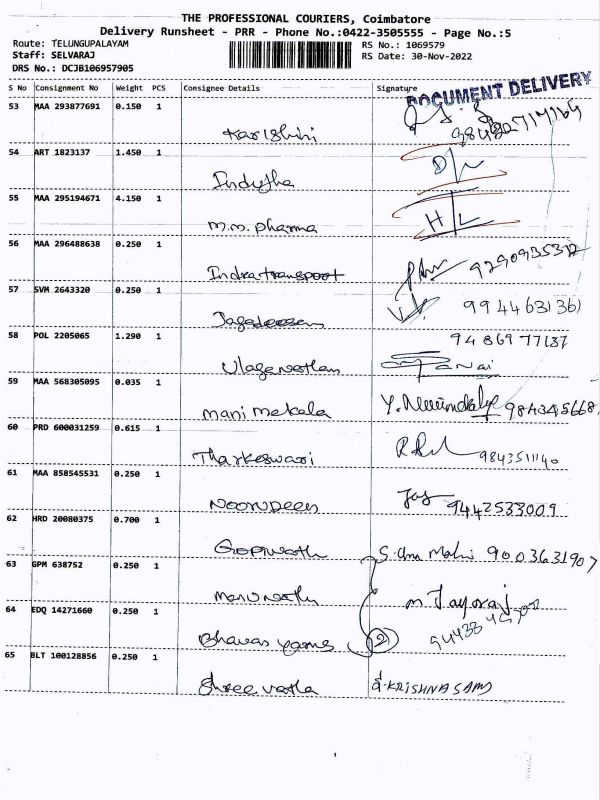 THE PROFESSIONAL COURIERS, Coimbatore
Delivery Runsheet - PRR - Phone No.:0422-3505555 - Page No.:5
Route: TELUNGUPALAYAM
RS No.: 1069579
Staff: SELVARAJ
RS Date: 30-Nov-2022
DRS No.: DCJB106957905
S No Consignment No Weight PCS Consignee Details Signature
DOCUMENT DELIVERY
53 MAA 293877691 0.150 1
54 ART 1823137 1.450 1
D/L
Indujtha
55 MAA 295194671 4.150 1
H/L
M.M. Pharma
56 MAA 296488638 0.250 1
Indra transport
57 SVM 2643320 0.250 1
9944631361
Jagadeesan
58 POL 2205065 1.290 1
9486977137
Ulaganathan
59 MAA 568305095 0.035 1
Mani mekala
60 PRD 600031259 0.615 1
Tharkeswari 9843511140
61 MAA 858545531 0.250 1
9442533009
Noorudeen
62 HRD 20080375 0.700 1
Gopinath S. Uma Mahi 9003631907
63 GPM 638752 0.250 1
Manunathi M Jayaraj
64 EDQ 14271660 0.250 1
2
65 BLT 100128856 0.250 1
Shree vatla KRISHNASAMY